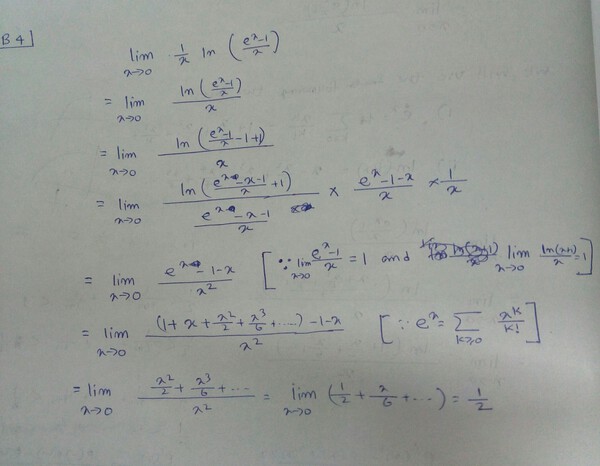 B4]
lim x→0 1/x ln ((e^x-1)/x)
= lim x→0 ln((e^x-1)/x) / x
= lim x→0 ln((e^x-1)/x -1+1) / x
= lim x→0 ln((e^x-x-1)/x +1) / ((e^x-x-1)/x) × (e^x-1-x)/x × 1/x
= lim x→0 (e^x-1-x)/x^2 [∵ lim x→0 (e^x-1)/x = 1 and lim x→0 ln(x+1)/x = 1]
= lim x→0 ((1+x+x^2/2+x^3/6+....)-1-x)/x^2 [∵ e^x = ∑ k≥0 x^k/k!]
= lim x→0 (x^2/2+x^3/6+...)/x^2 = lim x→0 (1/2+x/6+...) = 1/2